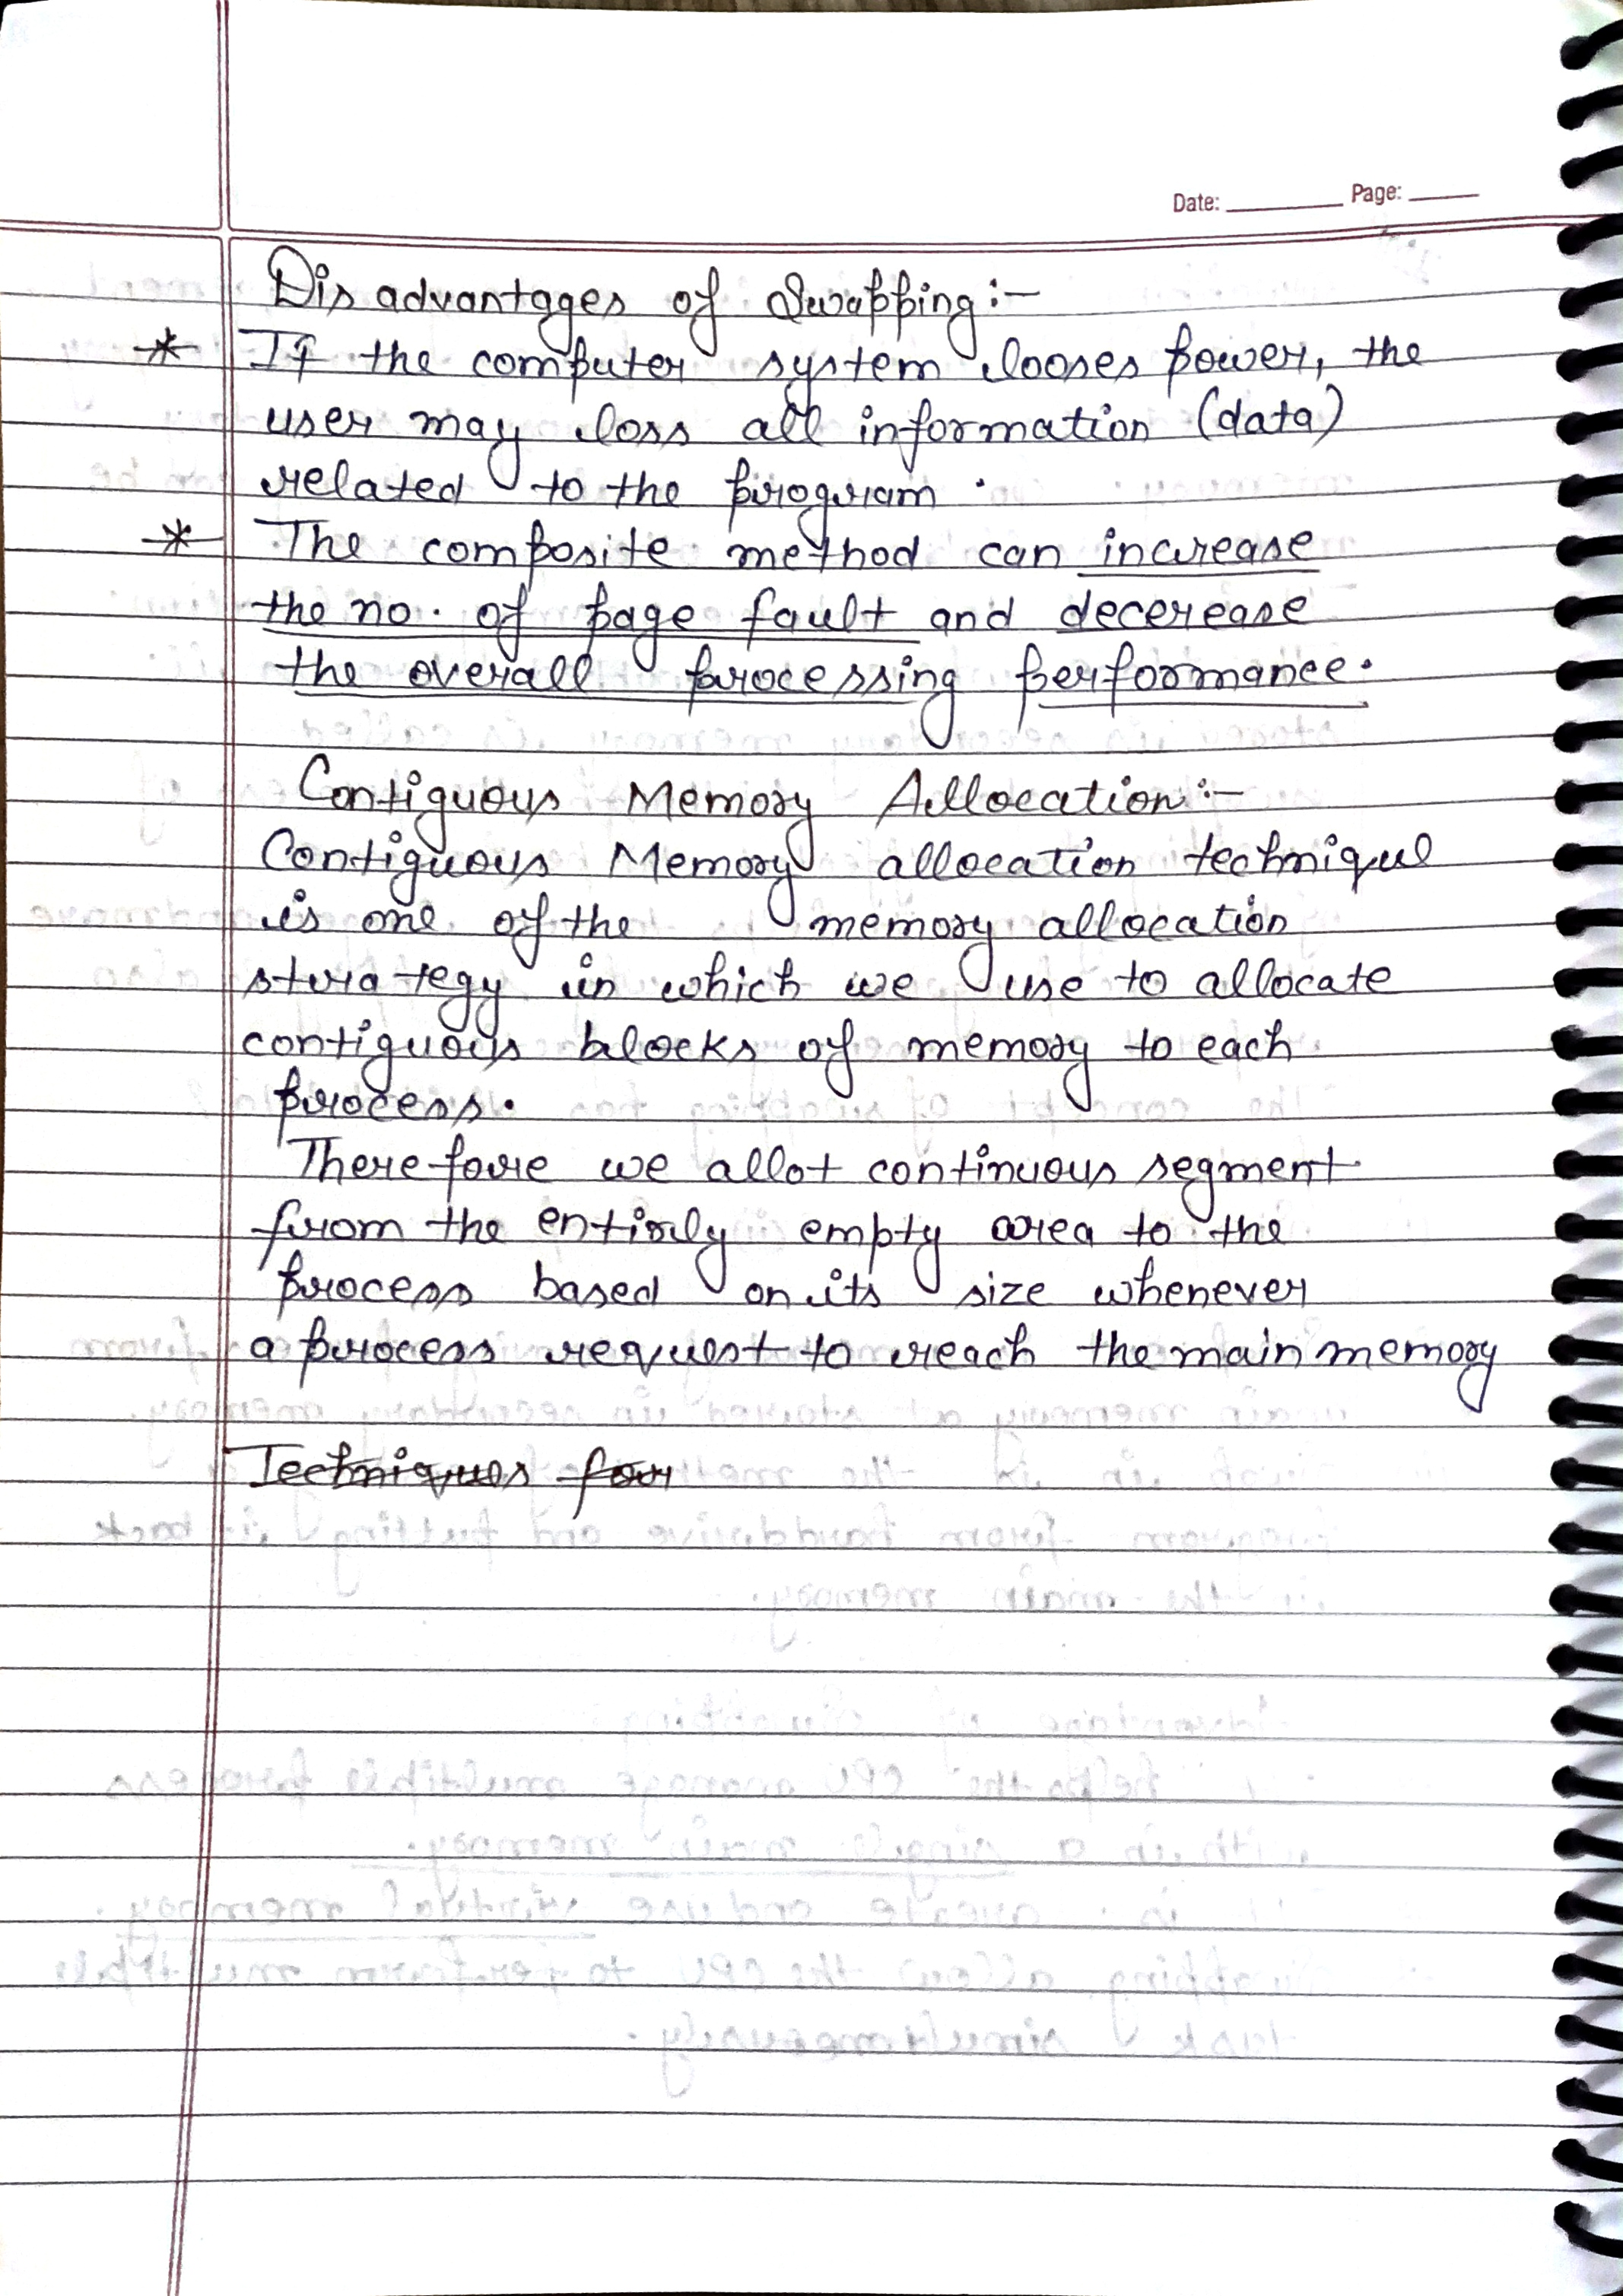 Date: Page:
Disadvantages of Swapping:-
* If the computer system looses power, the
user may loss all information (data)
related to the program.
* The composite method can increase
the no. of page fault and decerease
the overall processing performance.
Contiguous Memory Allocation:-
Contiguous Memory allocation technique
is one of the memory allocation
strategy in which we use to allocate
contiguous blocks of memory to each
process.
Therefore we allot continuous segment
from the entirly empty area to the
process based on its size whenever
a process request to reach the main memory
Techniques for